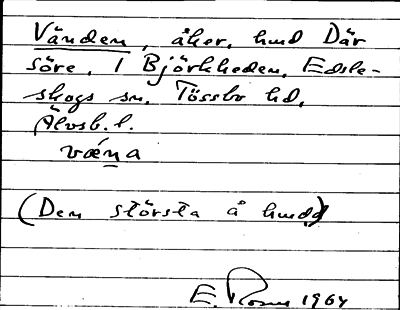 Vänden, åker, hmd Där
söre, 1 Björkheden, Edsle-
skogs sn, Tössbo hd,
Älvsb. l.
væ´na
(Den största å hmdd)
E. Rosn 1964